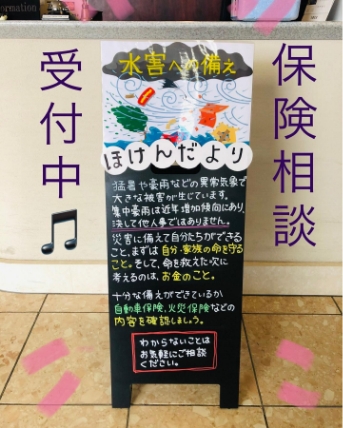 保険相談
受付中🎵
水害への備え
ほけんだより
猛暑や豪雨などの異常気象で
大きな被害が生じています。
集中豪雨は近年増加傾向にあり、
決して他人事ではありません。
災害に備えて自分たちができる
こと、まずは自分・家族の命を守る
こと。そして、命を救えた次に
考えるのは、お金のこと。
十分な備えができているか
自動車保険、火災保険などの
内容を確認しましょう。
わからないことは
お気軽にご相談
ください。